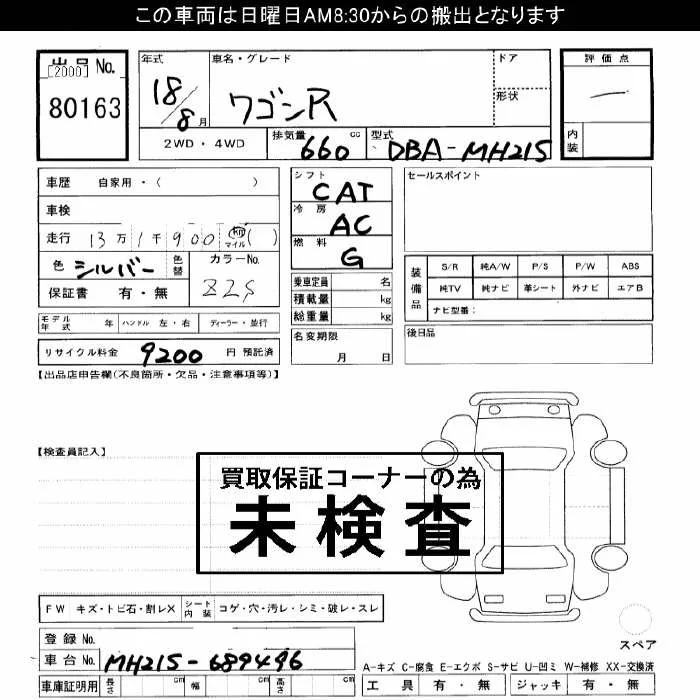 この車両は日曜日AM8:30からの搬出となります
出品No. [2000]
80163
年式
18/8月
車名・グレード
ワゴンR
ドア
形状
評価点
—
内装
2WD・4WD
排気量 660 cc
型式 DBA-MH21S
車歴 自家用・( )
車検
走行 13万1千900 km マイル ( )
色 シルバー 色替
カラーNo. Z2S
保証書 有・無
シフト CAT
冷房 AC
燃料 G
乗車定員 名
積載量 kg
総重量 kg
名変期限
月 日
セールスポイント
装備品
S/R 純A/W P/S P/W ABS
純TV 純ナビ 革シート 外ナビ エアB
ナビ型番:
後日品
モデル年式 年 ハンドル 左・右 ディーラー・並行
リサイクル料金 9200 円 預託済
【出品店申告欄(不良箇所・欠品・注意事項等)】
【検査員記入】
買取保証コーナーの為
未検査
FW キズ・トビ石・割レX シート内装 コゲ・穴・汚レ・シミ・破レ・スレ
登録No.
車台No. MH21S-689496
車庫証明用 長さ cm 幅 cm 高さ cm
スペア
A-キズ C-腐食 E-エクボ S-サビ U-凹ミ W-補修 XX-交換済
工具 有・無 ジャッキ 有・無